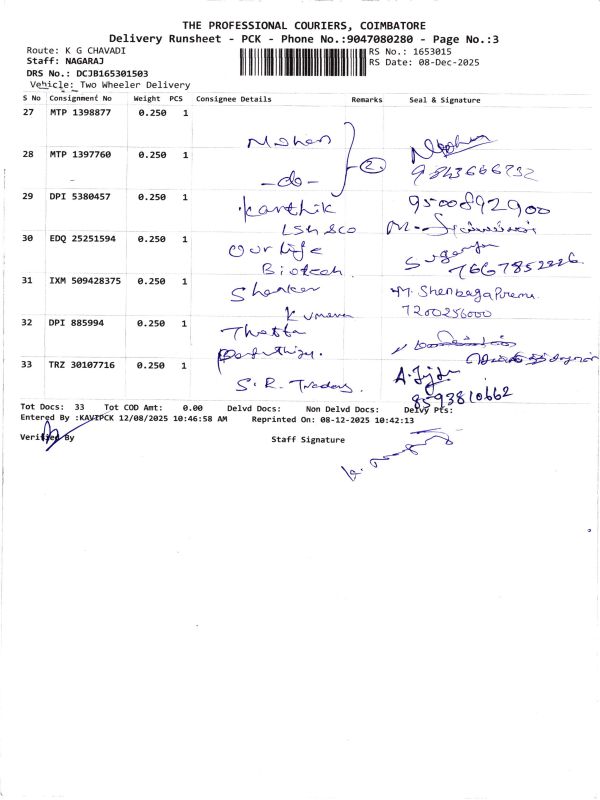 THE PROFESSIONAL COURIERS, COIMBATORE
Delivery Runsheet - PCK - Phone No.:9047080280 - Page No.:3
Route: K G CHAVADI
RS No.: 1653015
Staff: NAGARAJ
RS Date: 08-Dec-2025
DRS No.: DCJB165301503
Vehicle: Two Wheeler Delivery
S No Consignment No Weight PCS Consignee Details Remarks Seal & Signature
27 MTP 1398877 0.250 1
Mohan
28 MTP 1397760 0.250 1
-do- 2
9843666732
29 DPI 5380457 0.250 1
Karthik
9500892900
30 EDQ 25251594 0.250 1
Our Life
Biotech.
Suganya
7667852226
31 IXM 509428375 0.250 1
Kumaran
7200256000
32 DPI 885994 0.250 1
33 TRZ 30107716 0.250 1
S. R. Traders.
8593810662
Tot Docs: 33 Tot COD Amt: 0.00 Delvd Docs: Non Delvd Docs: Delvy Pts:
Entered By :KAVIPCK 12/08/2025 10:46:58 AM Reprinted On: 08-12-2025 10:42:13
Verified By Staff Signature